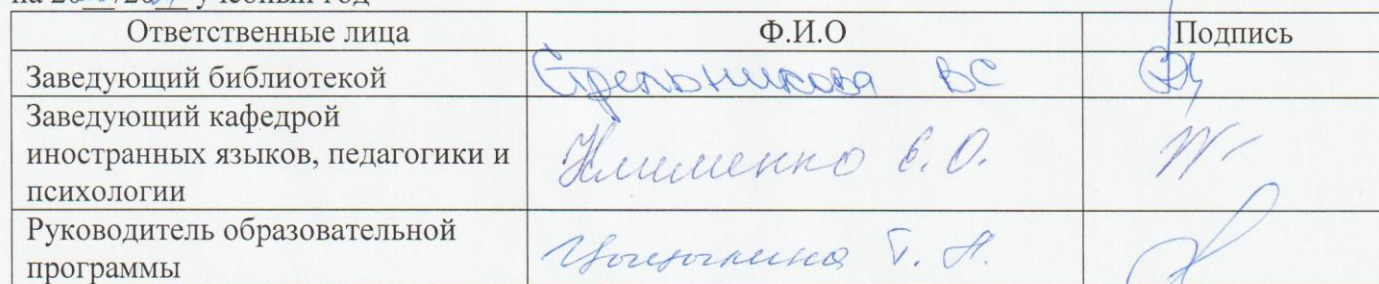 на 20 /20 учебный год
Ответственные лица Ф.И.О Подпись
Заведующий библиотекой Стрельникова ВС
Заведующий кафедрой
иностранных языков, педагогики и Клименко Е.О.
психологии
Руководитель образовательной Т. А.
программы